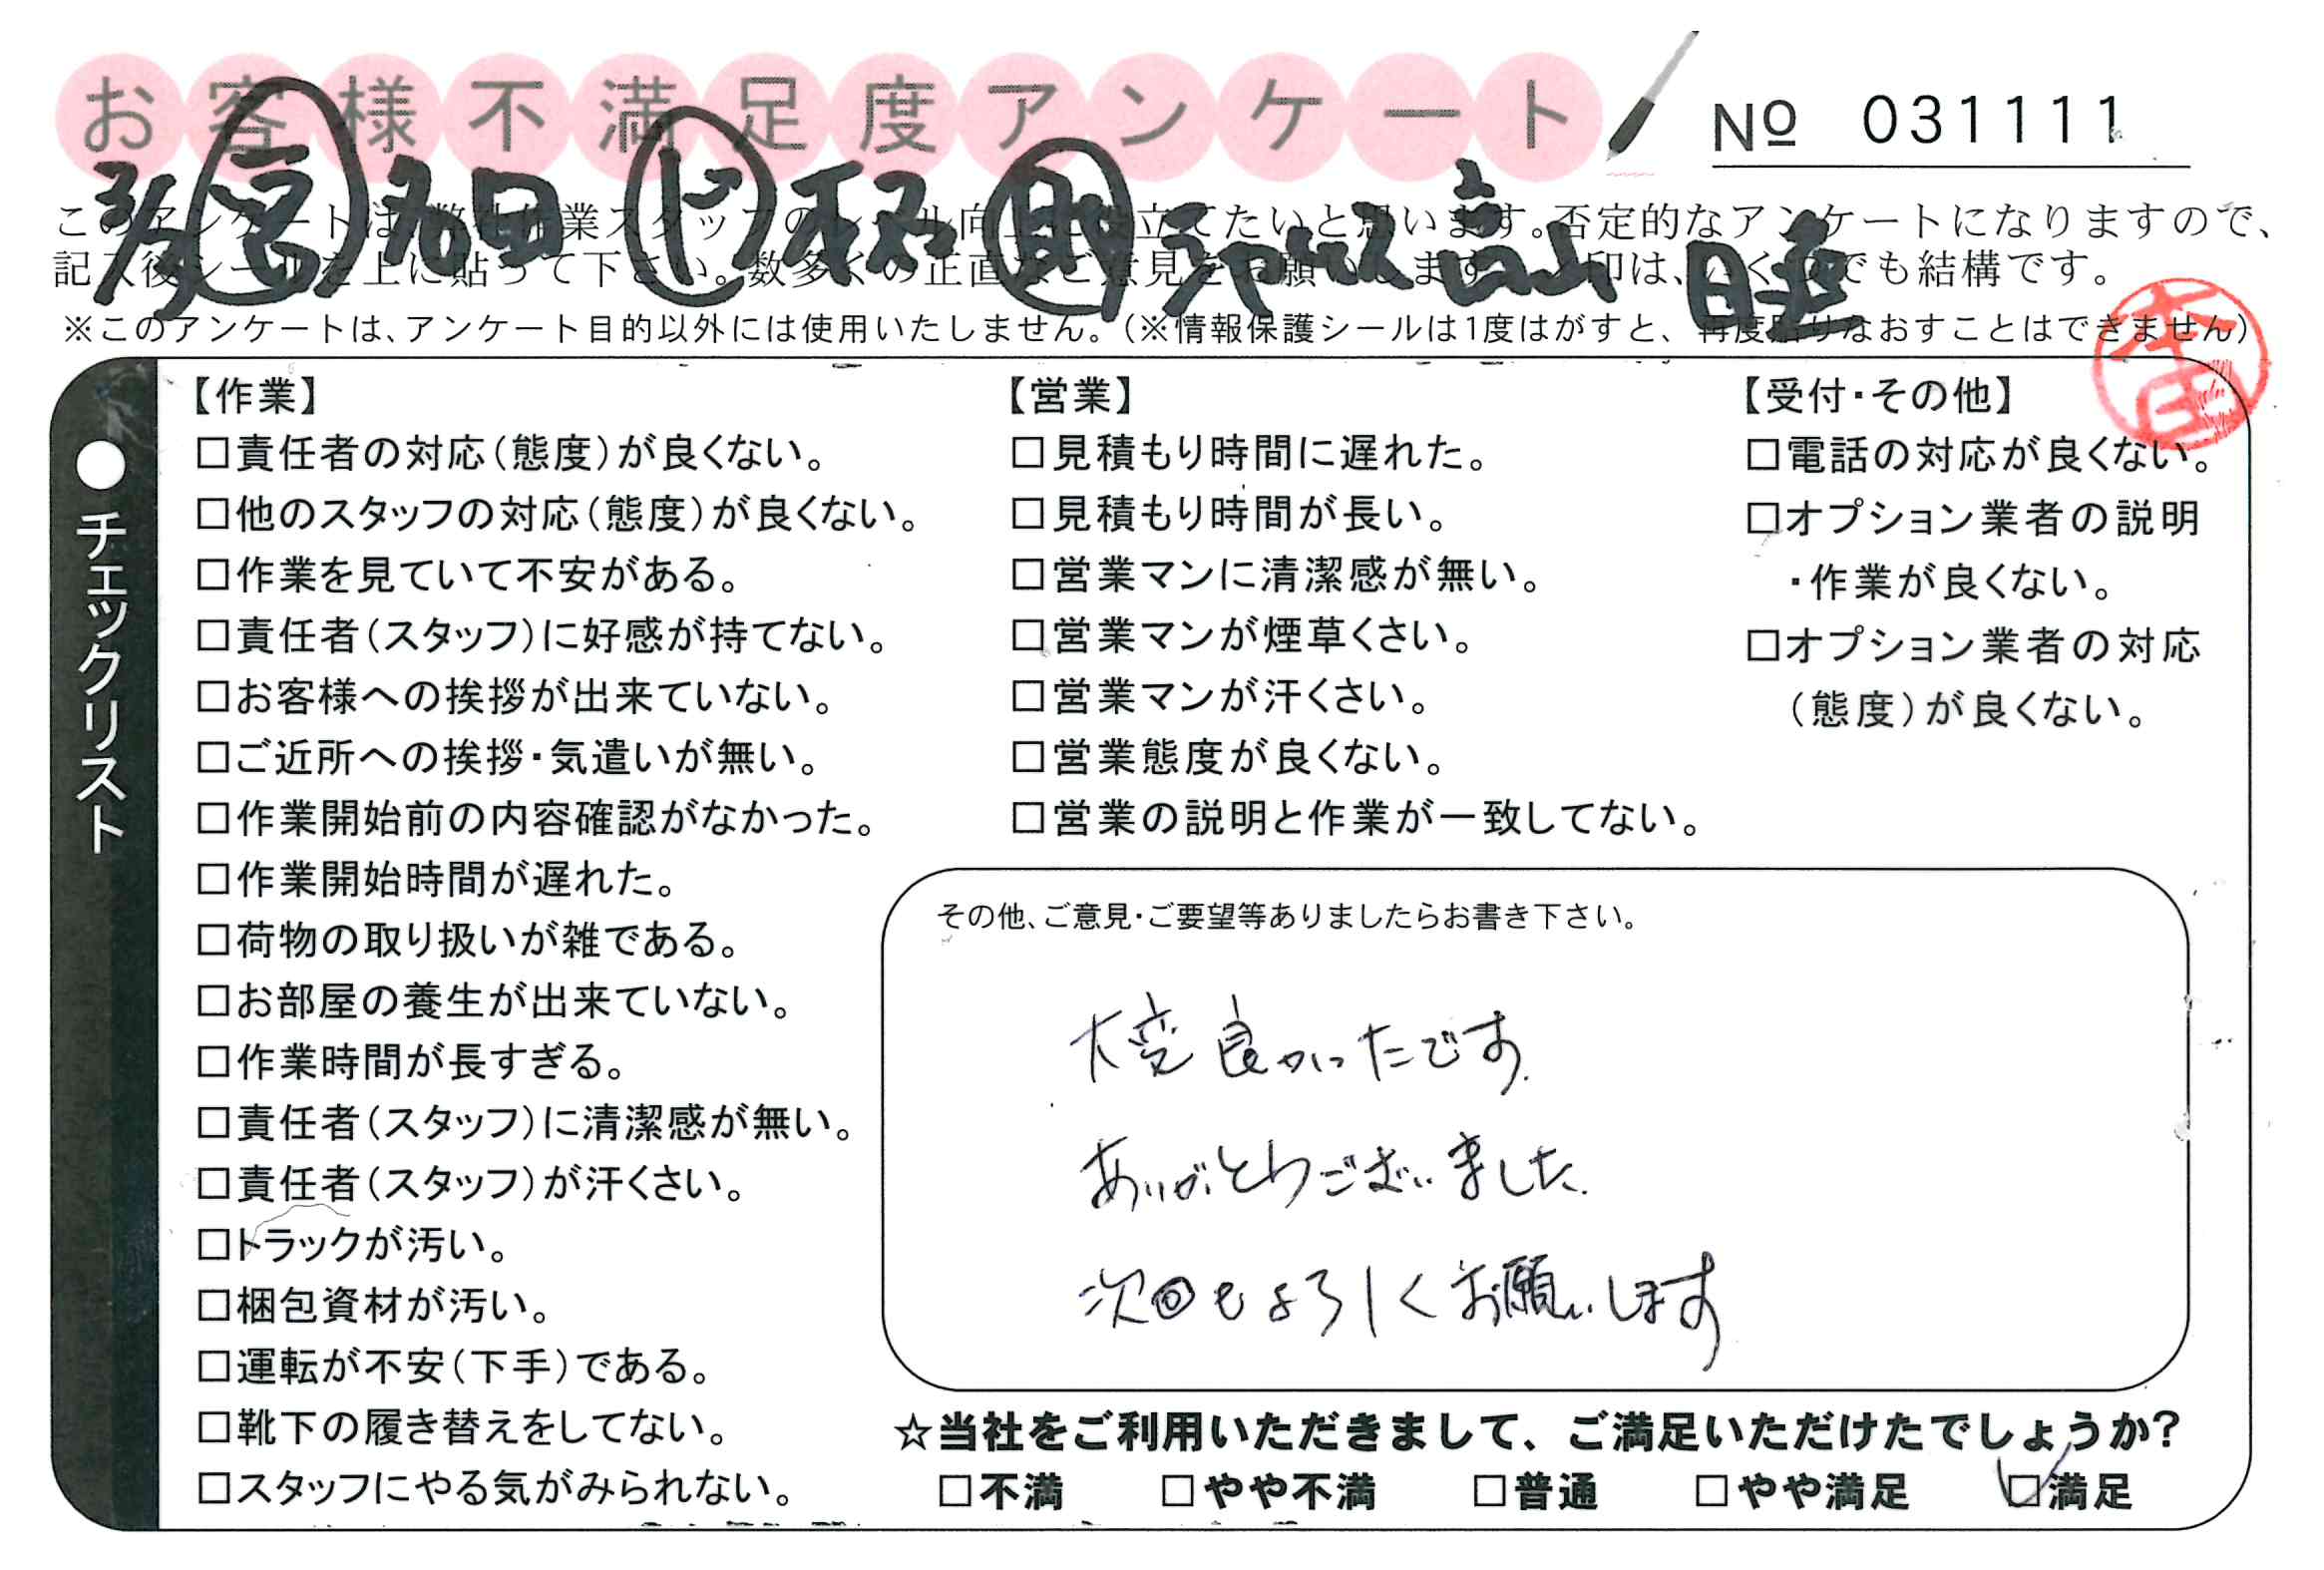 お客様不満足度アンケート
No 031111
このアンケートは、弊社作業スタッフのレベル向上に役立てたいと思います。否定的なアンケートになりますので、
記入後シールを上に貼って下さい。数多くの正直なご意見をお願いします。 印は、いくつでも結構です。
※このアンケートは、アンケート目的以外には使用いたしません。(※情報保護シールは1度はがすと、再度貼りなおすことはできません)
本田
●チェックリスト
【作業】
□責任者の対応(態度)が良くない。
□他のスタッフの対応(態度)が良くない。
□作業を見ていて不安がある。
□責任者(スタッフ)に好感が持てない。
□お客様への挨拶が出来ていない。
□ご近所への挨拶・気遣いが無い。
□作業開始前の内容確認がなかった。
□作業開始時間が遅れた。
□荷物の取り扱いが雑である。
□お部屋の養生が出来ていない。
□作業時間が長すぎる。
□責任者(スタッフ)に清潔感が無い。
□責任者(スタッフ)が汗くさい。
□トラックが汚い。
□梱包資材が汚い。
□運転が不安(下手)である。
□靴下の履き替えをしてない。
□スタッフにやる気がみられない。
【営業】
□見積もり時間に遅れた。
□見積もり時間が長い。
□営業マンに清潔感が無い。
□営業マンが煙草くさい。
□営業マンが汗くさい。
□営業態度が良くない。
□営業の説明と作業が一致してない。
【受付・その他】
□電話の対応が良くない。
□オプション業者の説明
・作業が良くない。
□オプション業者の対応
(態度)が良くない。
その他、ご意見・ご要望等ありましたらお書き下さい。
大変良かったです.
ありがとうございました.
次回もよろしくお願いします
☆当社をご利用いただきまして、ご満足いただけたでしょうか?
□不満 □やや不満 □普通 □やや満足 ☑満足